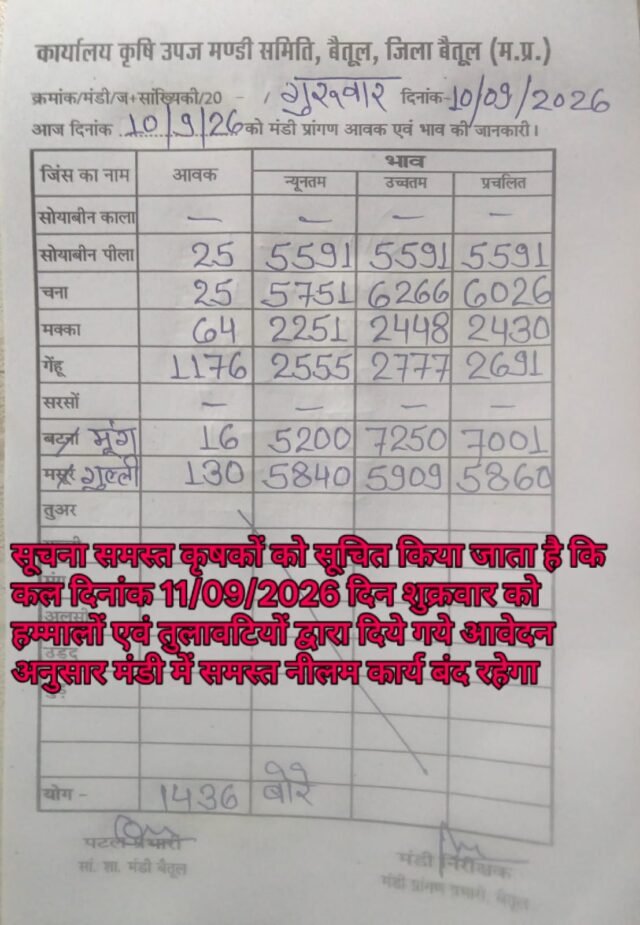 कार्यालय कृषि उपज मण्डी समिति, बैतूल, जिला बैतूल (म.प्र.)
क्रमांक/मंडी/ज+सांख्यिकी/20 - / गुरुवार दिनांक-10/09/2026
आज दिनांक 10/9/26 को मंडी प्रांगण आवक एवं भाव की जानकारी।
जिंस का नाम आवक भाव
न्यूनतम उच्चतम प्रचलित
सोयाबीन काला — — — —
सोयाबीन पीला 25 5591 5591 5591
चना 25 5751 6266 6026
मक्का 64 2251 2448 2430
गेंहू 1176 2555 2777 2691
सरसों — — — —
बटना मूंग 16 5200 7250 7001
मसूर गुल्ली 130 5840 5909 5860
तुअर
सूचना समस्त कृषकों को सूचित किया जाता है कि
कल दिनांक 11/09/2026 दिन शुक्रवार को
अलसी
हम्मालों एवं तुलावटियों द्वारा दिये गये आवेदन
उड़द
अनुसार मंडी में समस्त नीलाम कार्य बंद रहेगा
योग - 1436 बोरे
प्रभारी
सां. शा. मंडी बैतूल
मंडी निरीक्षक
मंडी प्रांगण प्रभारी, बैतूल